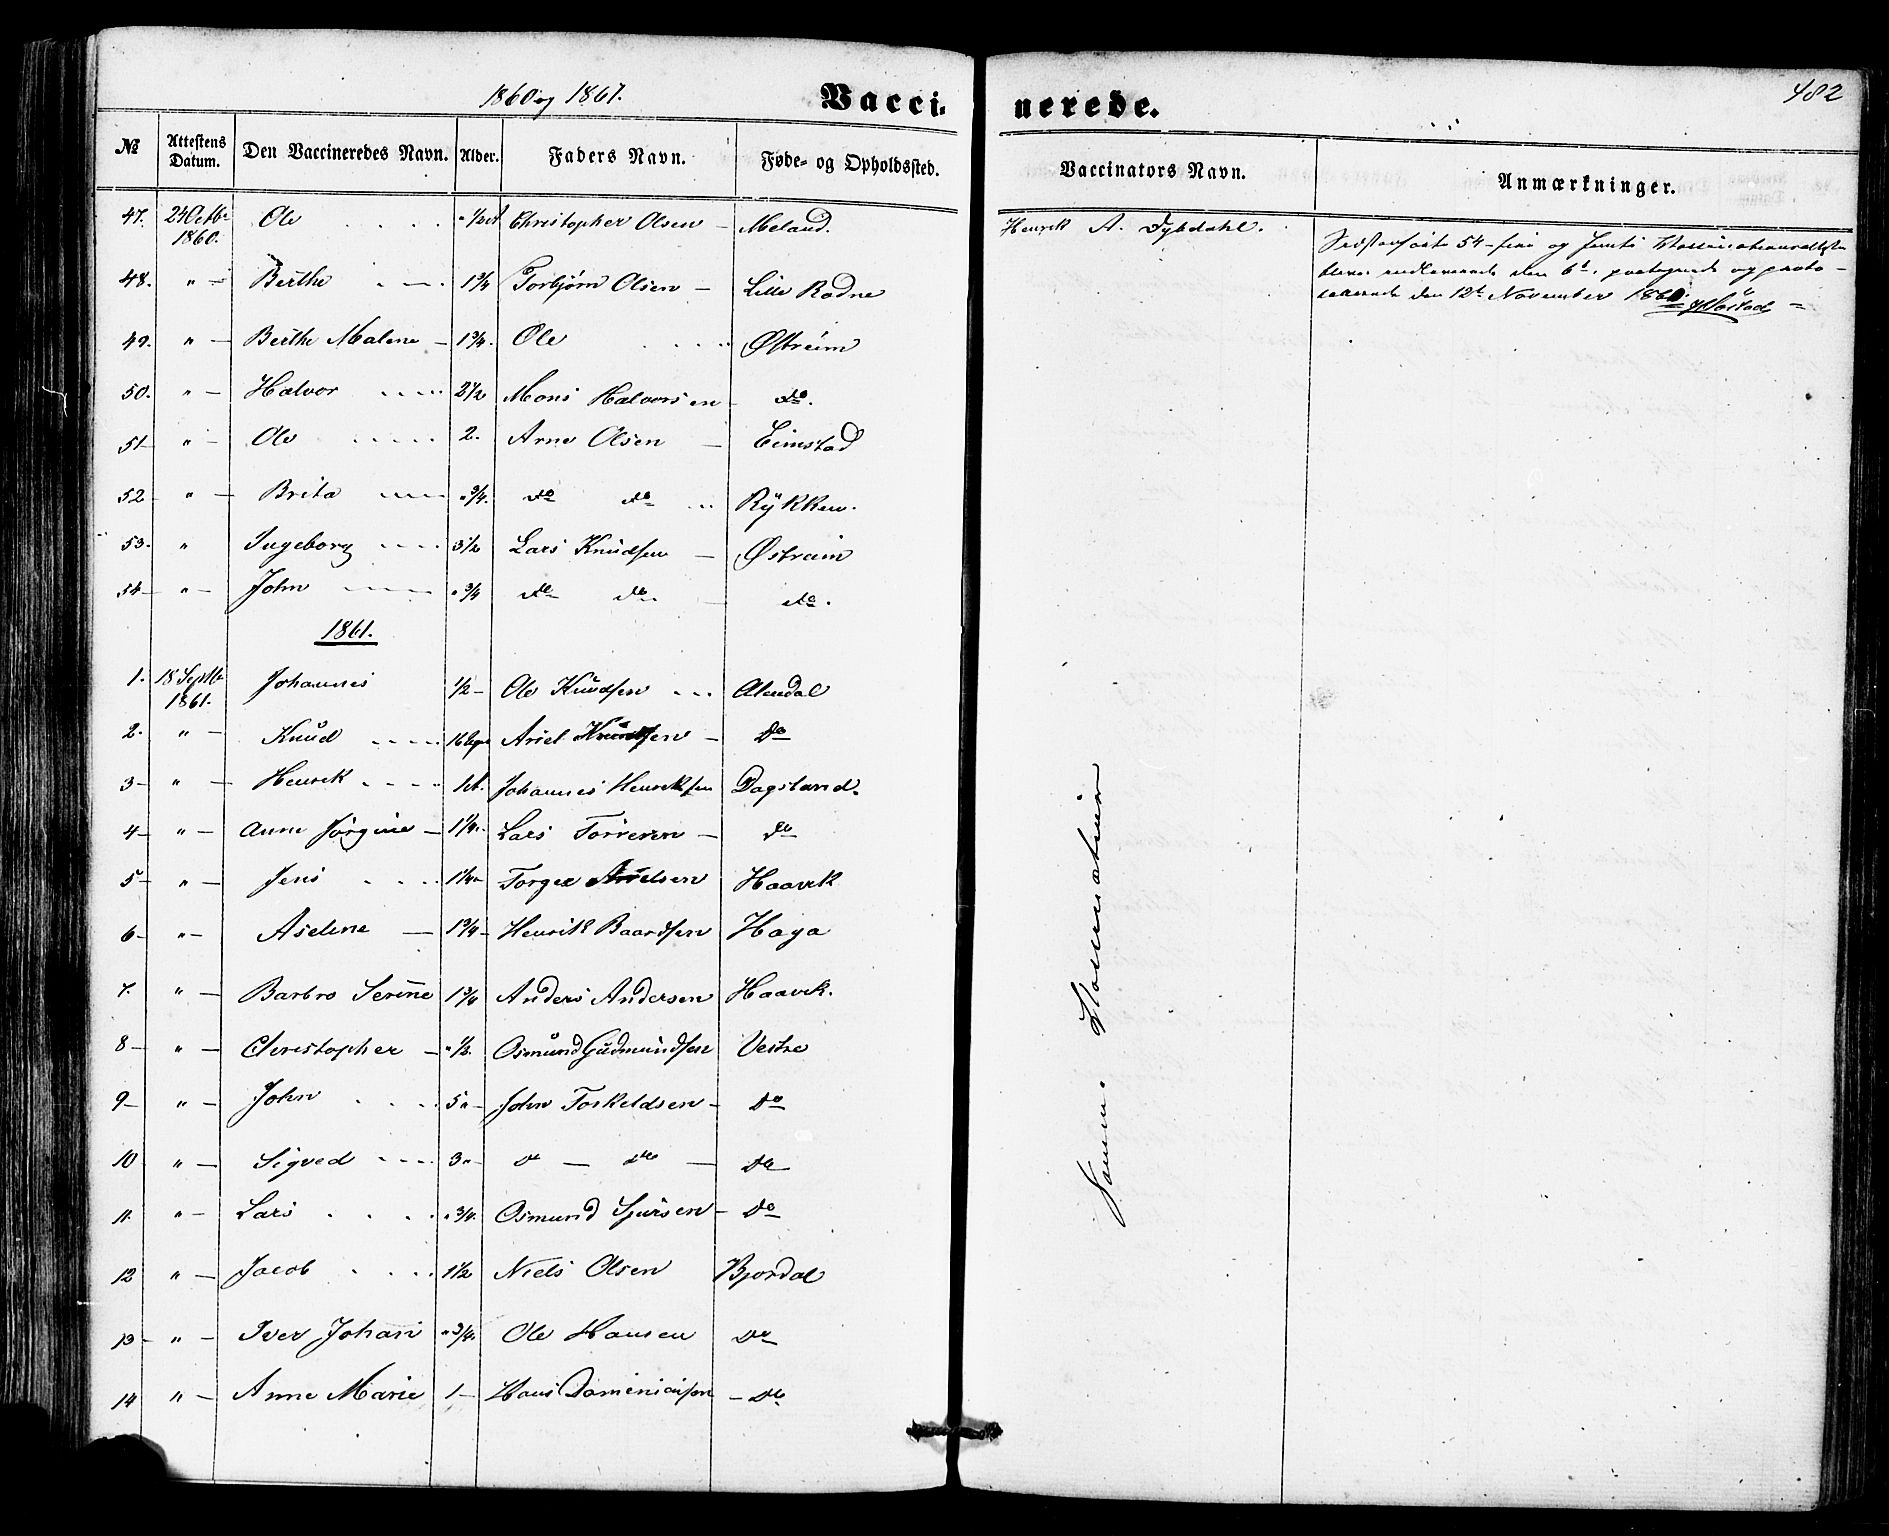 1860 og 1861. Vaccinerede. 482
№ | Attestens Datum. | Den Vaccineredes Navn. | Alder. | Faders Navn. | Føde- og Opholdssted. | Vaccinators Navn. | Anmærkninger.
47. | 24 Octbr 1860. | Ole | " 1/2 | Christopher Olsen | Meland. | Henrik A. Dybdahl.
48. | " | Berthe | 1 3/4 | Torbjørn Olsen | Lille Rødne
49. | " | Berthe Malene | 1 3/4. | Ole | Østreim
50. | " | Halvor | 2 1/2 | Mons Halvorsen | do.
51 | " | Ole | 2. | Arne Olsen | Eimstad
52 | " | Brita | " 3/4. | do do | Rykken.
53. | " | Ingeborg | 3 1/2 | Lars Knudsen | Østreim
54 | " | John | " 3/4 | do do. | do.
1861.
1. | 18 Septbr 1861. | Johannes | 1/2 | Ole Knudsen | Alnedal
2. | " | Knud | Ariel Knudsen | Do
3 | " | Henrik | Johannes Henriksen | Dagsland.
4 | " | Anne Jørgine | 1 1/4. | Lars | do
5 | " | Jens | Torger Arielsen | Haavik
6 | " | Aseline | 1 3/4 | Henrik Baardsen | Haga
7. | " | Barbro Serine | 1 3/4 | Anders Andersen | Haavik.
8 | " | Christopher | " 1/2. | Osmund Gudmundsen | Vestre
9 | " | John | 5 " | John Torkeldsen | Do
10 | " | Sigved | 3 " | do do | Do
11. | " | Lars | " 3/4. | Osmund Sjursen | Do
12 | " | Jacob | 1 1/2 | Niels Olsen | Bjordal
13 | " | Iver Johan | " 3/4. | Ole Hansen | Do
14 | " | Anne Marie | 1 | Hans | Do
54
den 6te, den 12te November 1860.